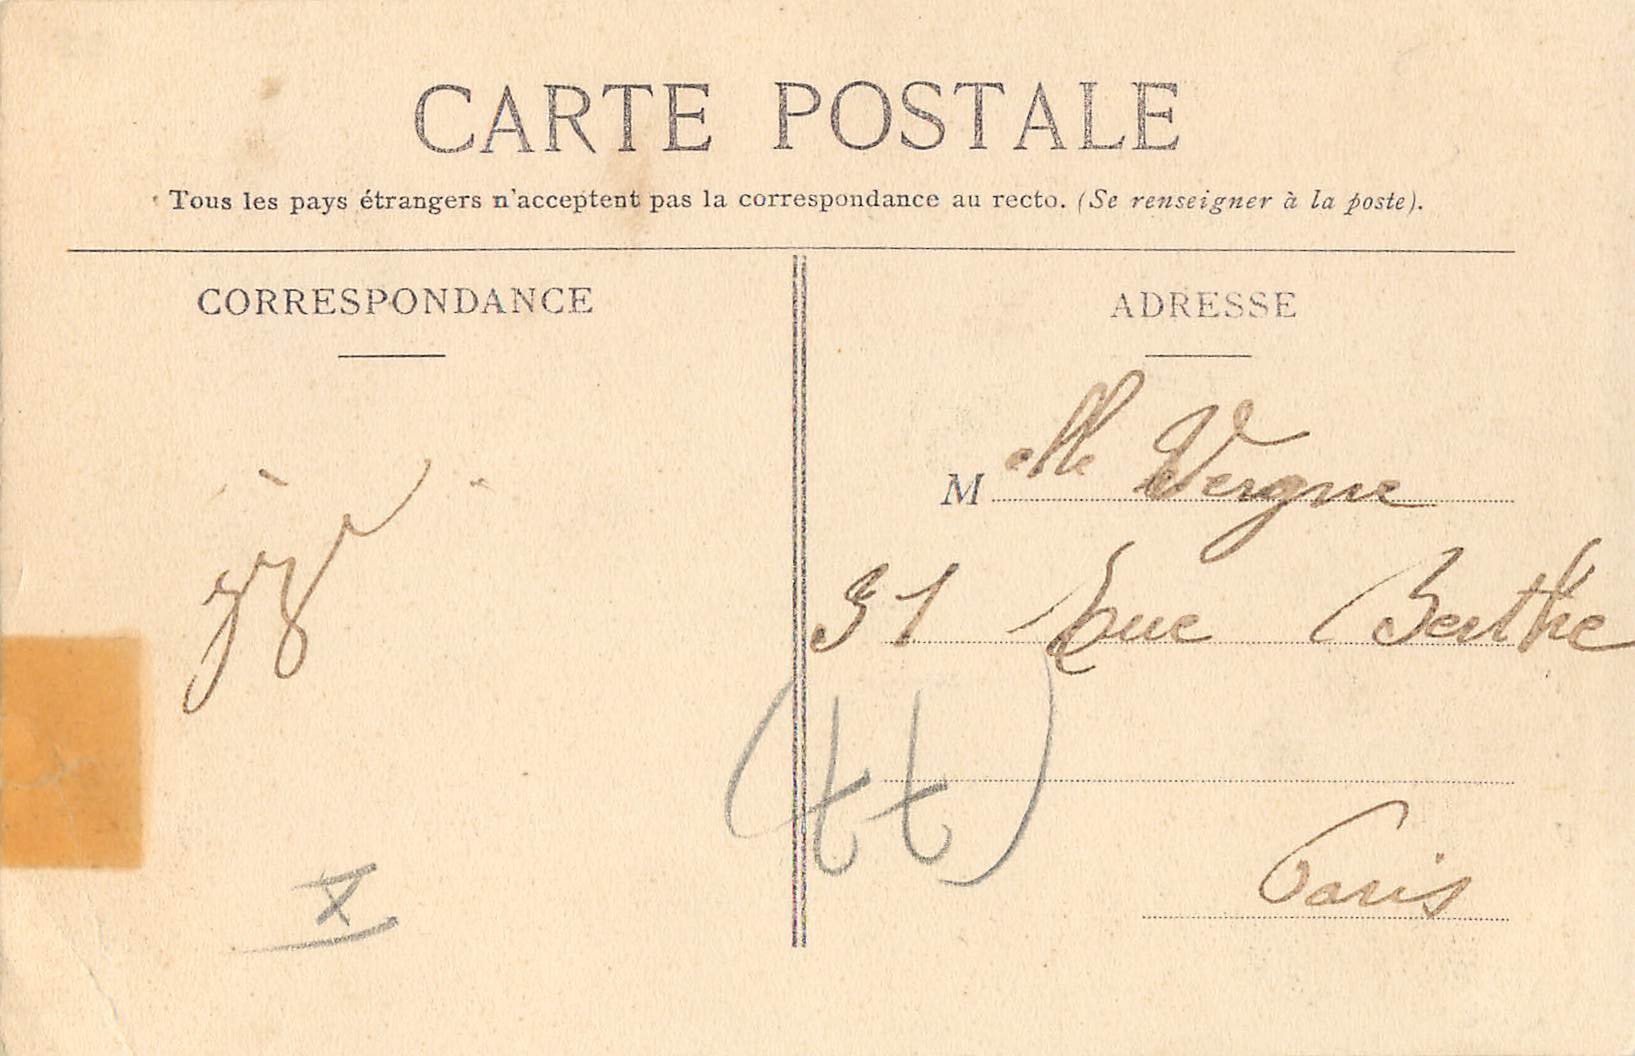 CARTE POSTALE
Tous les pays étrangers n'acceptent pas la correspondance au recto. (Se renseigner à la poste).
CORRESPONDANCE
ADRESSE
Melle Vergne
31 Rue Berthe
(tt)
Paris
X